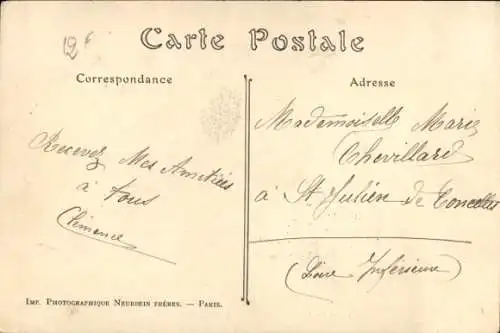 12 f
Carte Postale
Correspondance
Adresse
Recevez Mes Amitiés
à tous
Clémence
Mademoiselle Marie
Chevillard
à St Julien de Concelles
(Loire Inférieure)
IMP. PHOTOGRAPHIQUE NEURDEIN FRÈRES. — PARIS.